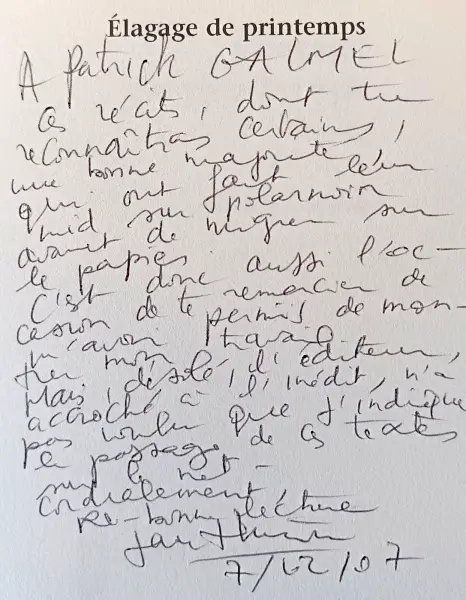 Élagage de printemps
A Patrick GALMEL
Ces récits, dont tu
reconnaîtras certains,
une bonne majorité,
qui ont fait leur
nid sur polarnoir
avant de migrer sur
le papier.
C'est donc aussi l'oc-
casion de te remercier de
m'avoir permis de mon-
trer mon travail.
Mais, désolé, l'éditeur,
accroché à l'inédit, n'a
pas voulu que j'indique
le passage de ces textes
sur le net -
cordialement
Re-bonne lecture
7/12/07